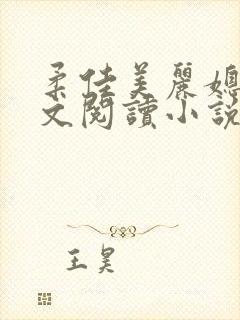 柔佳美麗媳
文閱讀小説
王昊